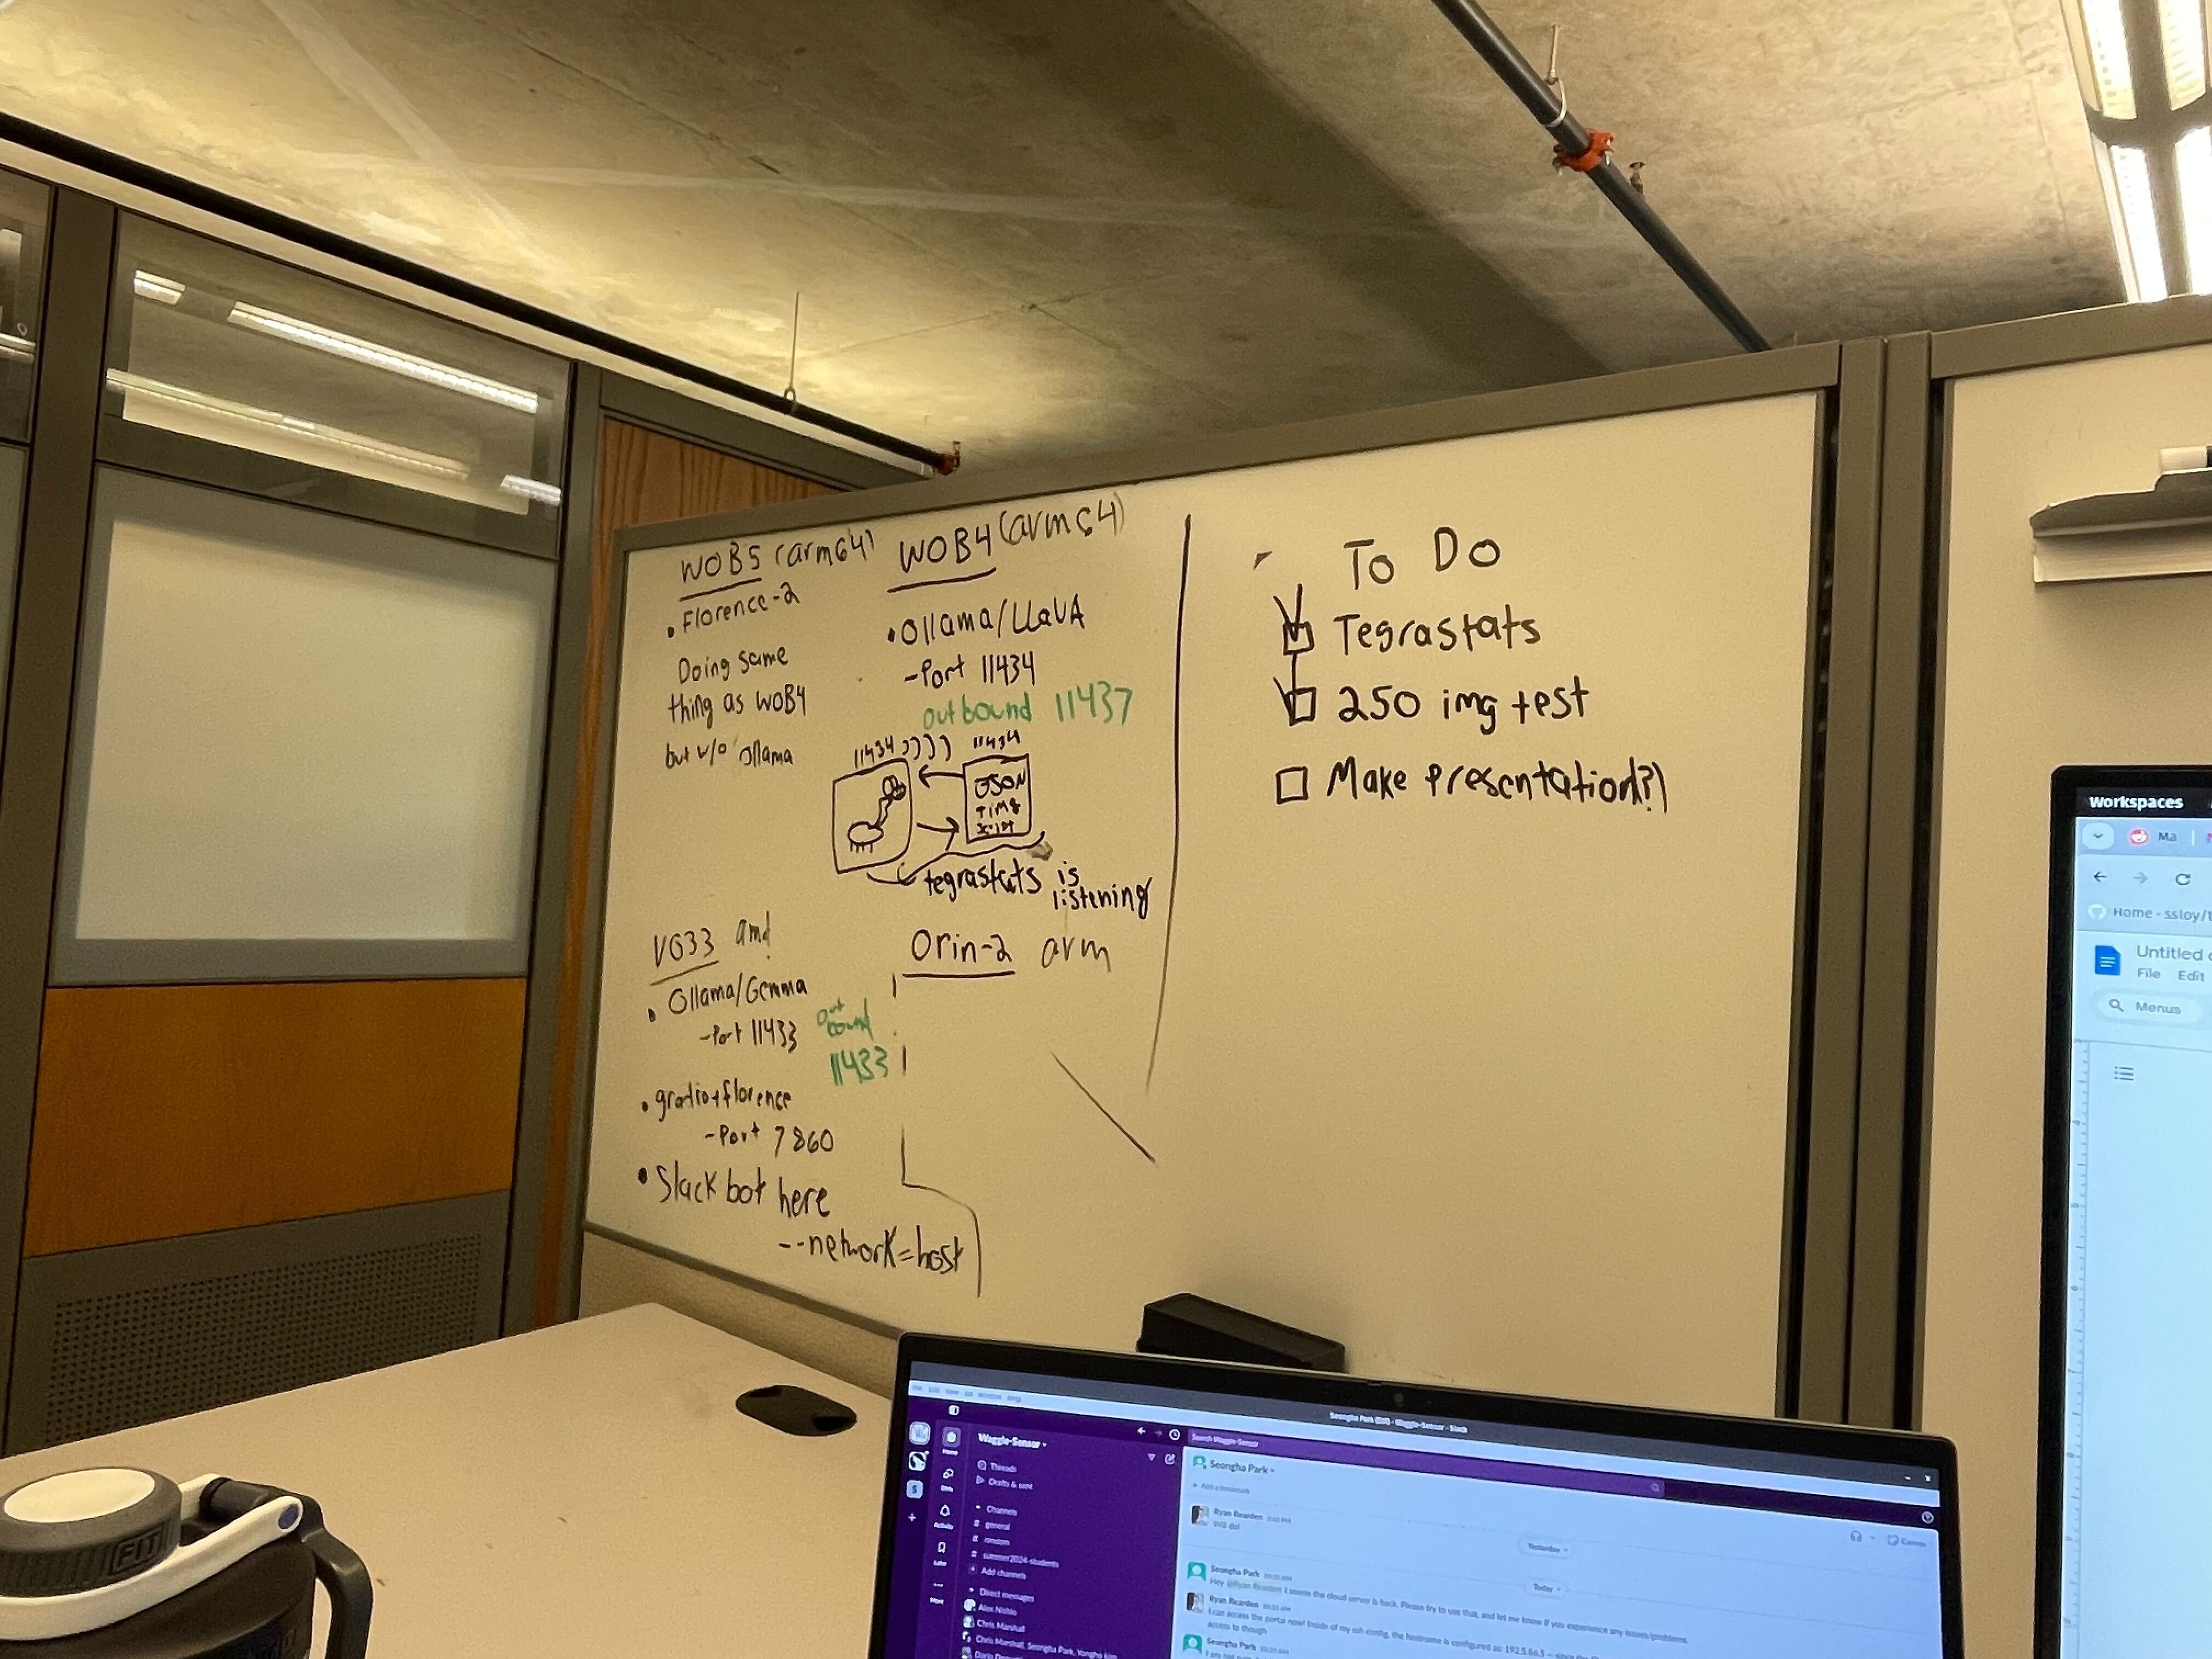 W0B5 (arm64)
• Florence-2
Doing same
thing as W0B4
but w/o ollama
W0B4 (arm64)
• Ollama/LLaVA
- Port 11434
outbound 11437
11434 )))) 11434
JSON
tegrastats is
listening
V033 amd
• Ollama/Gemma
- Port 11433
out
bound
11433
• gradio+florence
- Port 7860
• Slack bot here
--network=host
Orin-2 arm
To Do
Tegrastats
250 img test
Make presentation(?)
Workspaces
Ma
Home - ssloy/t
Untitled
File Edit
Menus
FIT
Seongha Park (DM) - Waggle-Sensor - Slack
Search Waggle-Sensor
Waggle-Sensor
Home
DMs
Activity
Later
More
Threads
Drafts & sent
Channels
general
random
summer2024-students
Add channels
Direct messages
Alex Nishio
Chris Marshall
Chris Marshall, Seongha Park, Yongho kim
Seongha Park
Add a bookmark
Canvas
Ryan Rearden
Will do!
Yesterday
Today
Seongha Park
Hey @Ryan Rearden I seems the cloud server is back. Please try to use that, and let me know if you experience any issues/problems.
Ryan Rearden
I can access the portal now! Inside of my ssh config, the hostname is configured as:
access to though
Seongha Park